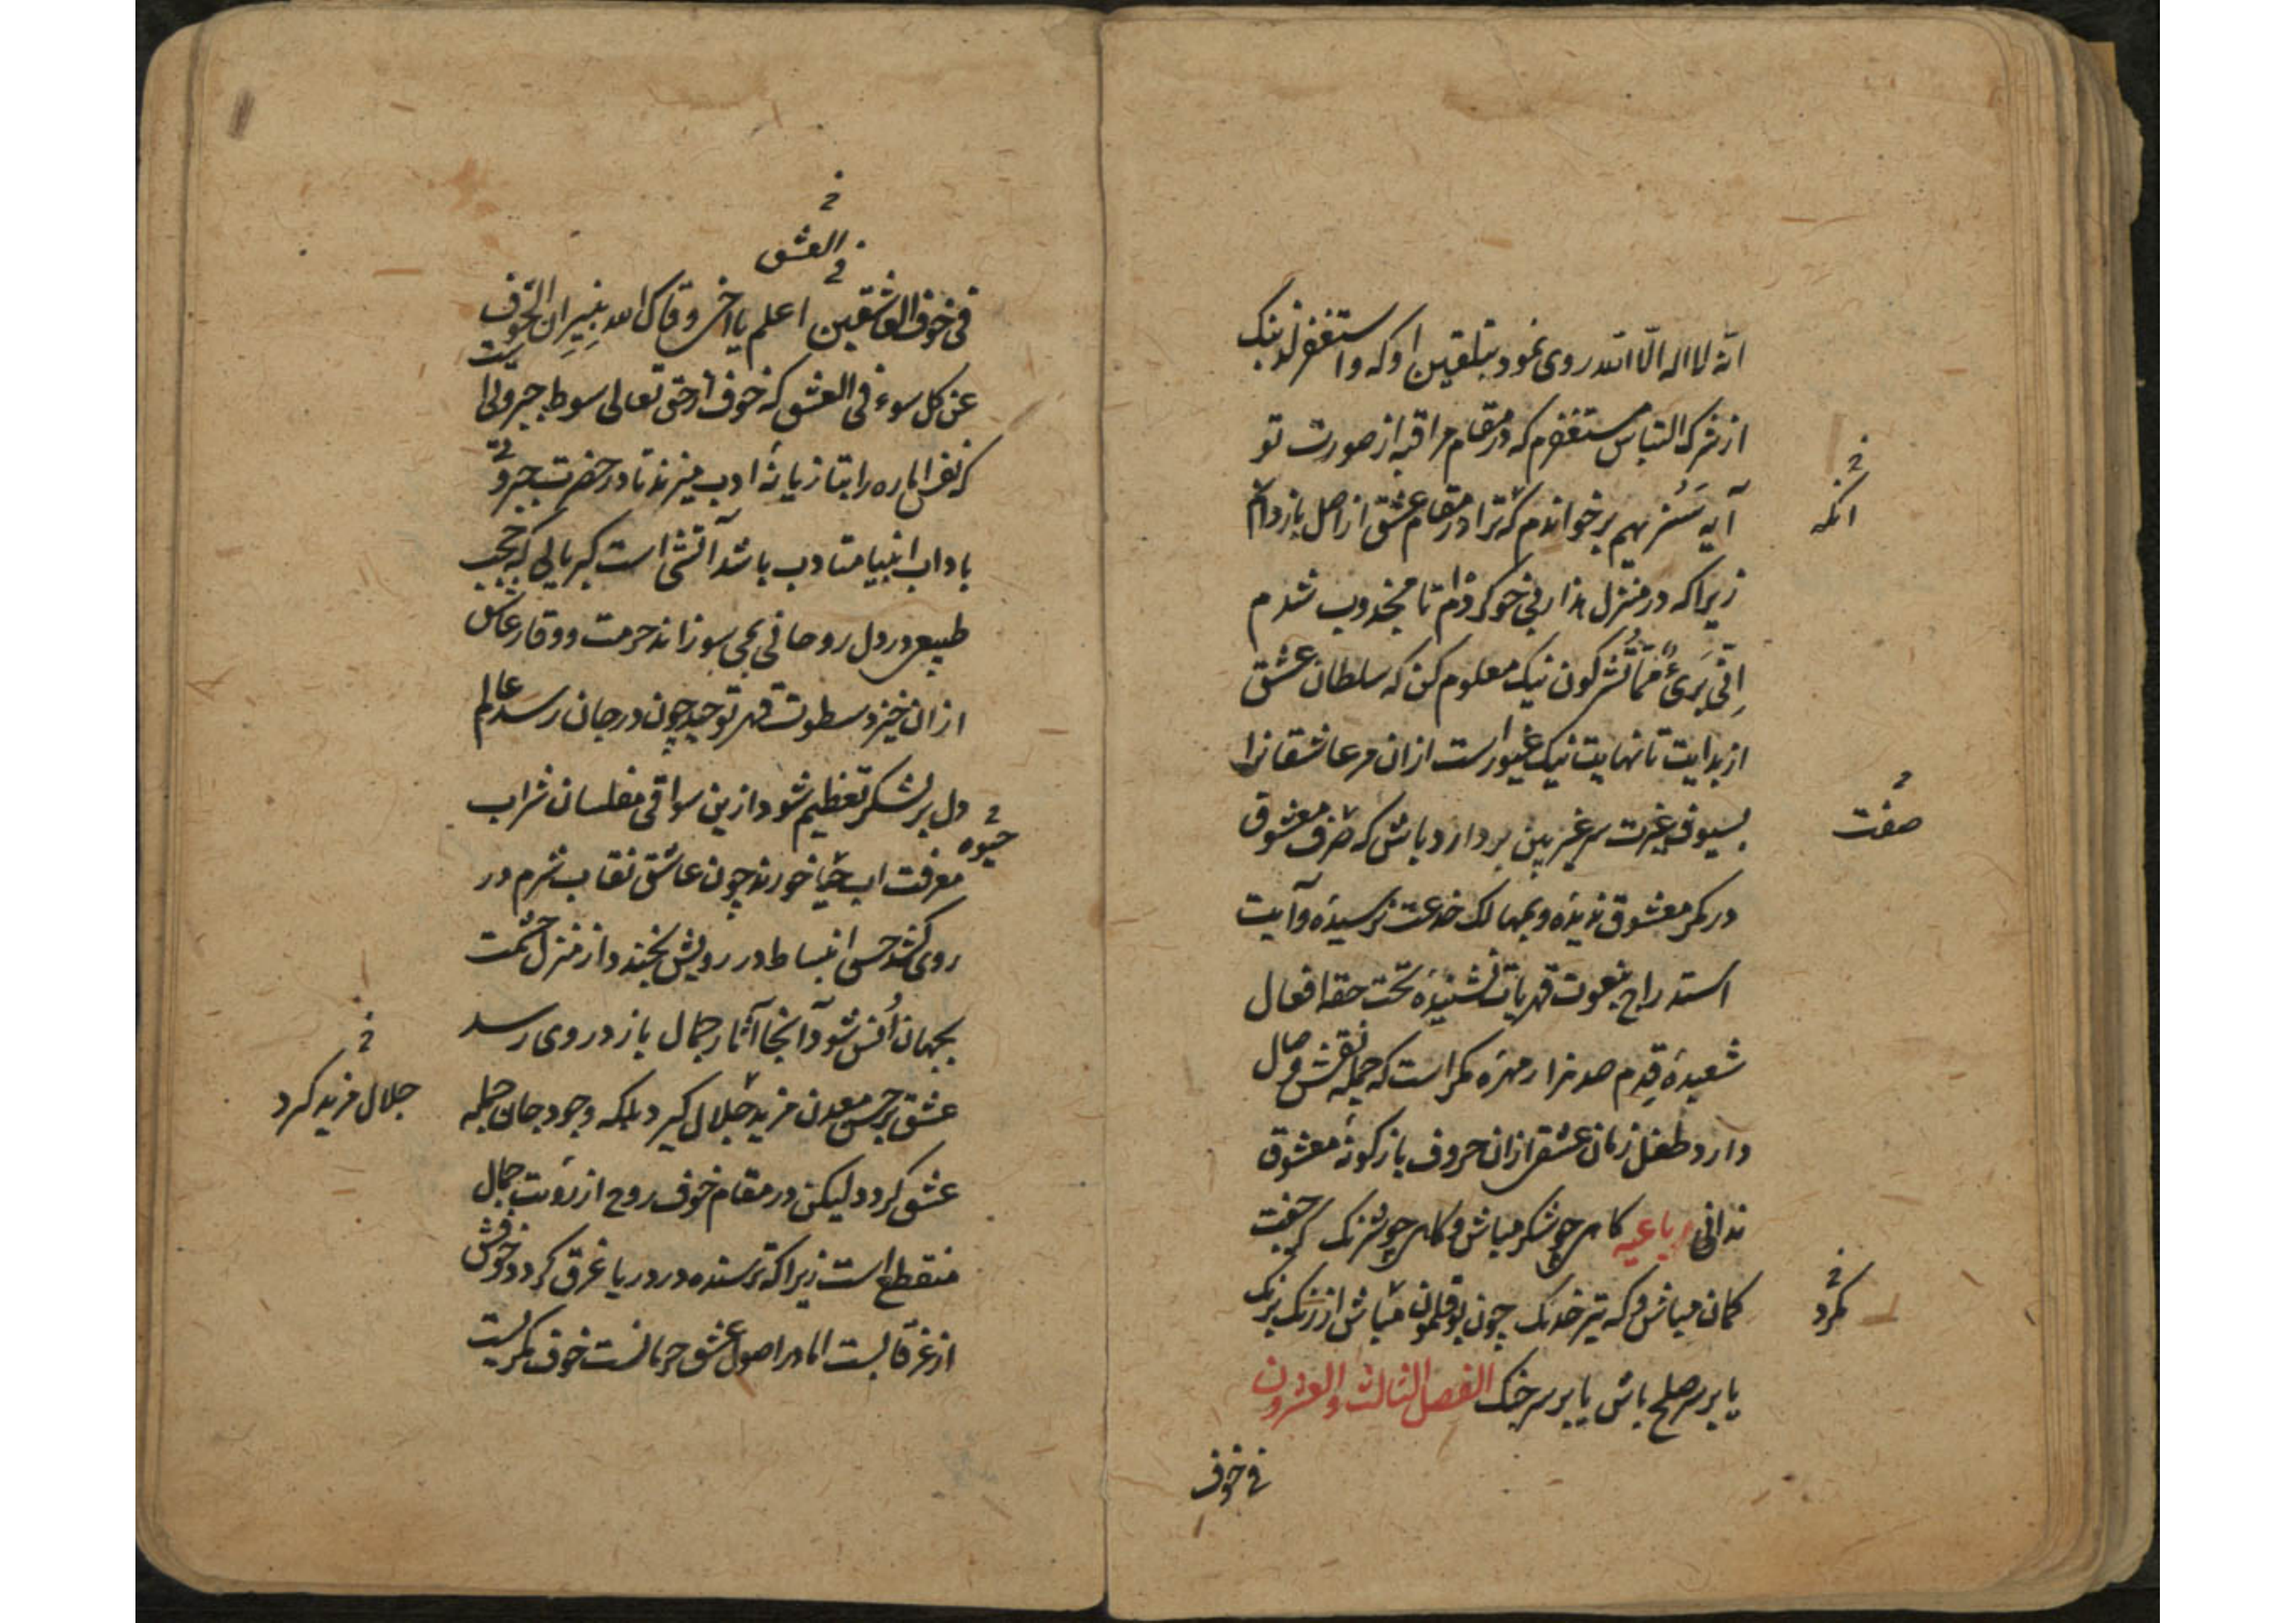 انه لا اله الّا الله روی نمود بتلقین او که واستغفر لذنبک
از شرک التباس مستغفرم که در مقام مراقبه از صورت تو
آیه سَنُریهم برخواندم که ترا در مقام عشق از اصل باز دوام
انکه
زیرا که در منزل هذا ربی خو کردم تا مجذوب شدم
اِنّی بَرِیءٌ مما تُشرکون نیک معلوم کن که سلطان عشق
از بدایت تا نهایت نیک غیور است از ان مر عاشقانرا
بسیوف غیرت سر غیر بین بردارد باش که صرف معشوق
صفت
در مکر معشوق ندیده و بمهالک خدعت نرسیده و آیت
استدراج بنعوت قهریات نشنیده تحت حقه افعال
شعبدهٔ قِدم صد هزار مهره مکر است که جمله نقش وصال
دارد طفل زمان عشقی ازان حروف بازگونهٔ معشوق
ندانی رباعیه کاهی چو شکر میباش و کاهی چو شرنک که جفت
کمان میباش و که تیر خدنک چون بوقلمون میباش از رنک برنک
کرد
یا بر سر صلح باش یا بر سر جنک الفصل الثالث و العشرون
فی خوف
فی العشق
فی خوف العاشقین اعلم یا اخی وقاک الله بغیر ان الخوف
عن کل سوء فی العشق که خوف از حق تعالی سوط جبروتی است
که نفس اماره را بتازیانهٔ ادب میزند تا در حضرت جبروتی
باداب انبیا متادب باشد آتشی است کبریایی که حجب
طبیعی در دل روحانی بمی سوزاند حرمت و وقار عاشق
از ان خیزد سطوت قهر توحید چون در جان رسد عالم
دل پر لشکر تعظیم شود ازین سواقی مفلسان شراب
حیوه
معرفت اب حیا خورند چون عاشق نقاب شرم در
روی کشد حسن انبساط در رویش بخندد از منزل حشمت
بجهان اُنس شود آنجا آثار جمال باز در وی رسد
عشق بر حسن معدن مزید جلال کیرد بلکه وجود جان جمله
جلال مزید کرد
عشق کردد لیکن در مقام خوف روح از رؤیت جمال
منقطع است زیرا که ترسنده در دریا غرق کردد خوفش
از غرقابست اما در اصول عشق حرمانست خوف مکریست